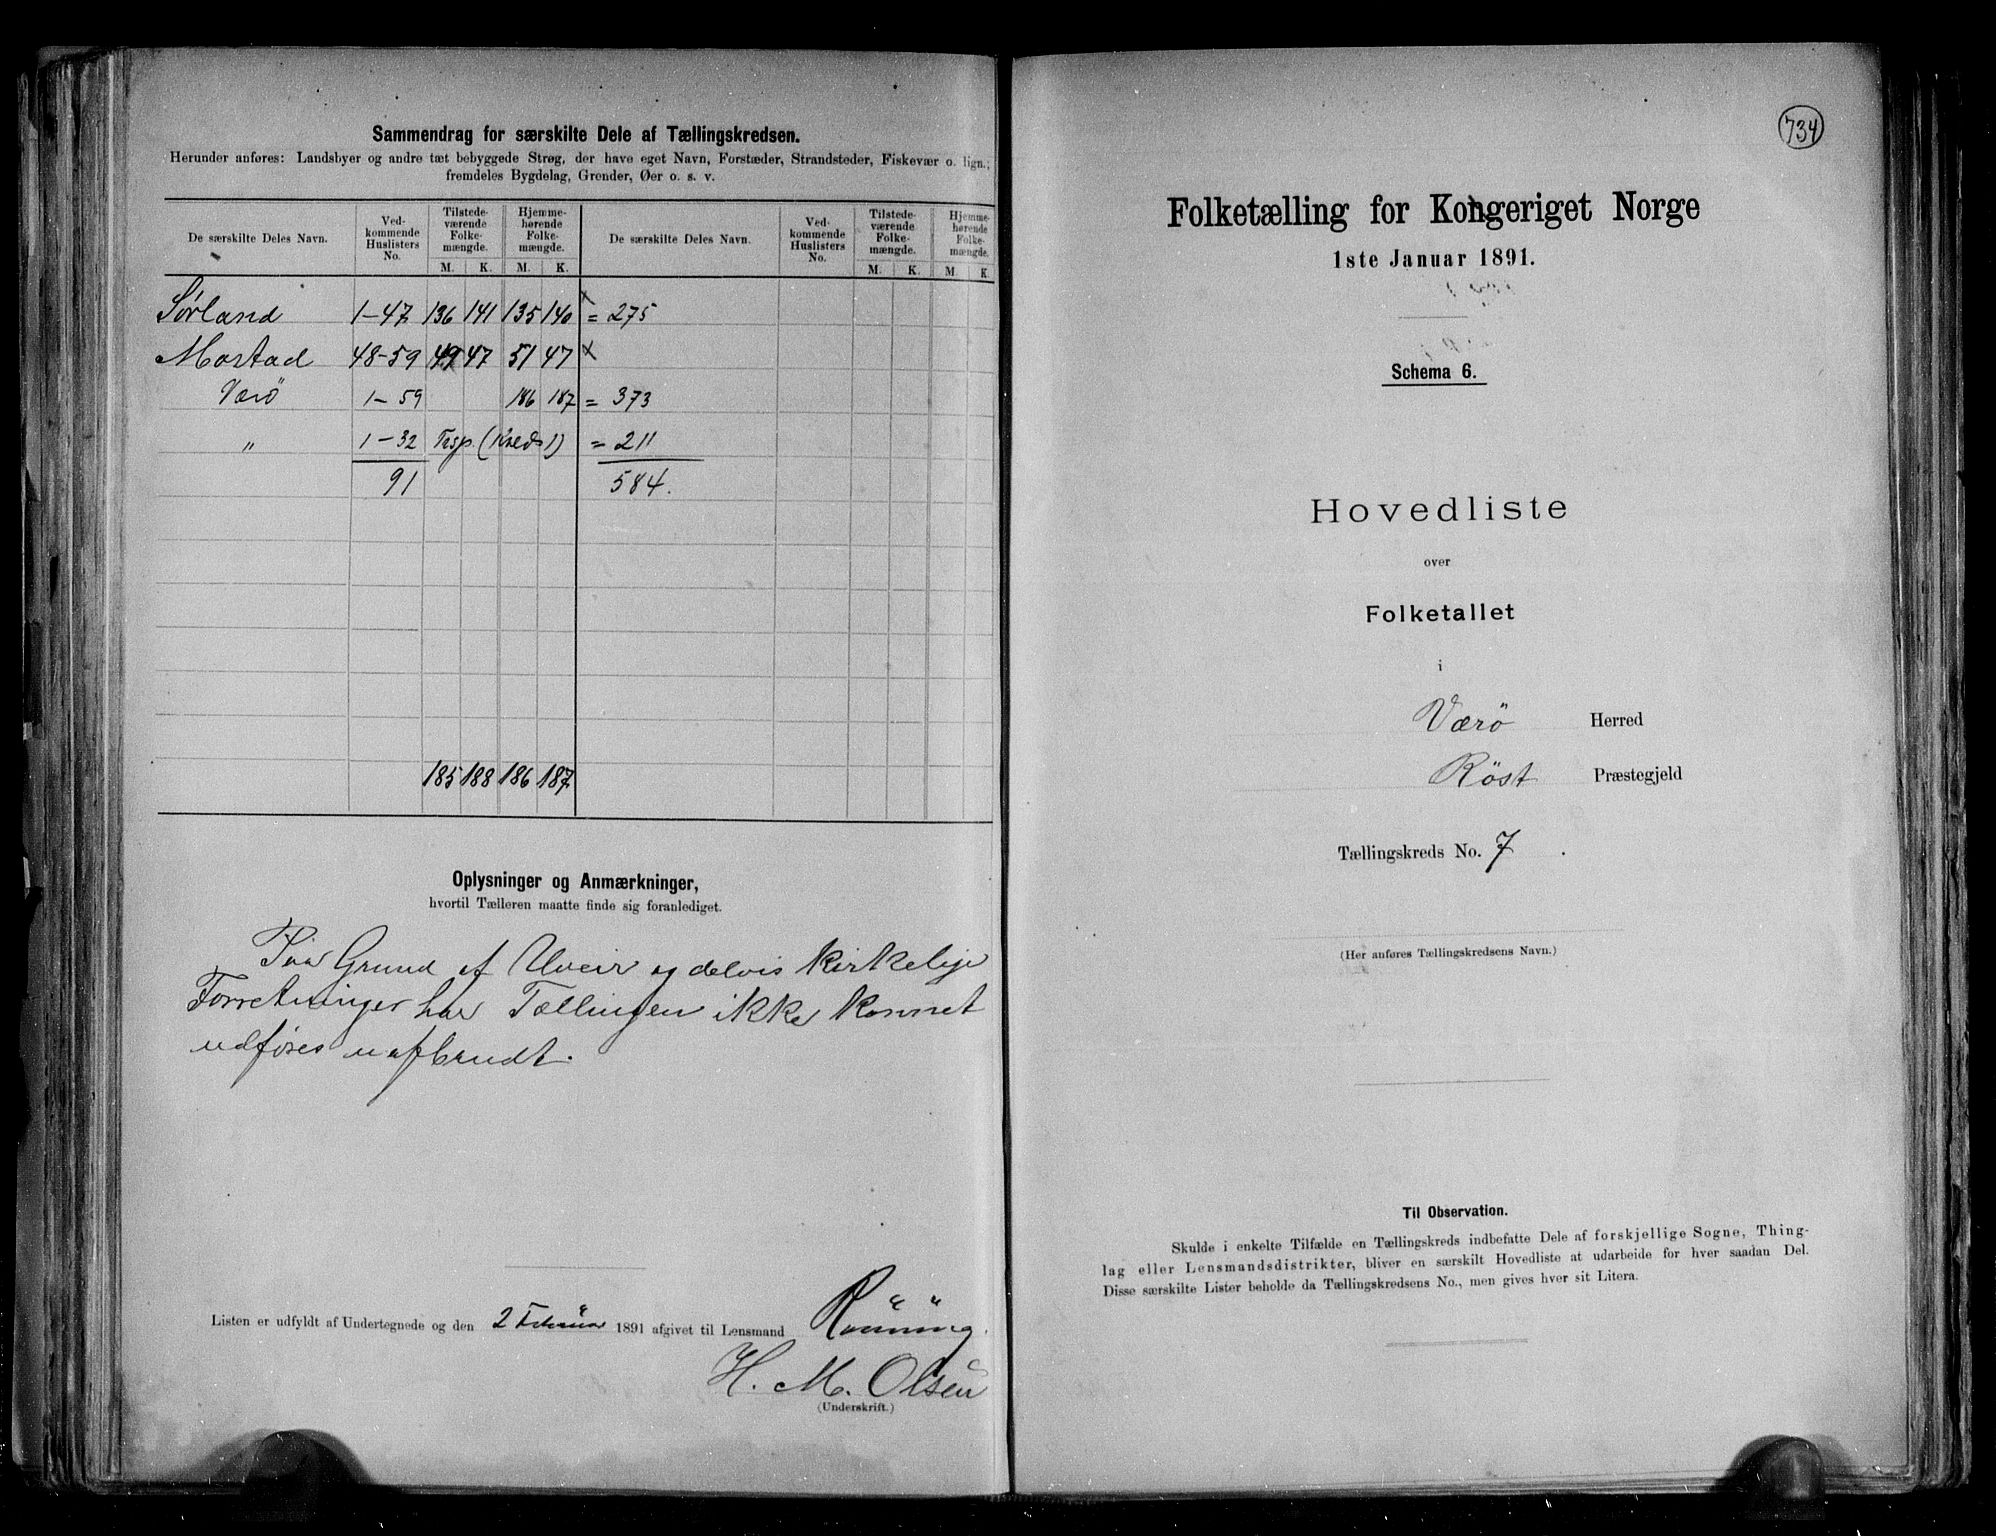 Sammendrag for særskilte Dele af Tællingskredsen.
Herunder anføres: Landsbyer og andre tæt bebyggede Strøg, der have eget Navn, Forstæder, Strandsteder, Fiskevær o. lign.;
fremdeles Bygdelag, Grender, Øer o. s. v.
De særskilte Deles Navn. Ved-kommende Huslisters No. Tilstede-værende Folke-mængde. Hjemme-hørende Folke-mængde. De særskilte Deles Navn. Ved-kommende Huslisters No. Tilstede-værende Folke-mængde. Hjemme-hørende Folke-mængde.
M. K. M. K. M. K. M. K.
Sørland 1-47 136 141 135 140 x = 275
Mostad 48-59 49 47 51 47 x
Værö 1-59 186 187 = 373
" 1-32 Tesp. (Kreds 1) = 211
91 584.
185 188 186 187
Oplysninger og Anmærkninger,
hvortil Tælleren maatte finde sig foranlediget.
Paa Grund af Uveir og delvis kirkelige
Forretninger har Tællingen ikke kunnet
udføres uafbrudt.
Listen er udfyldt af Undertegnede og den 2 Februar 1891 afgivet til Lensmand Rönning.
H. M. Olsen
(Underskrift.)
734
Folketælling for Kongeriget Norge
1ste Januar 1891.
Schema 6.
Hovedliste
over
Folketallet
i
Værö Herred
Röst Præstegjeld
Tællingskreds No. 7.
(Her anføres Tællingskredsens Navn.)
Til Observation.
Skulde i enkelte Tilfælde en Tællingskreds indbefatte Dele af forskjellige Sogne, Thing-
lag eller Lensmandsdistrikter, bliver en særskilt Hovedliste at udarbeide for hver saadan Del.
Disse særskilte Lister beholde da Tællingskredsens No., men gives hver sit Litera.